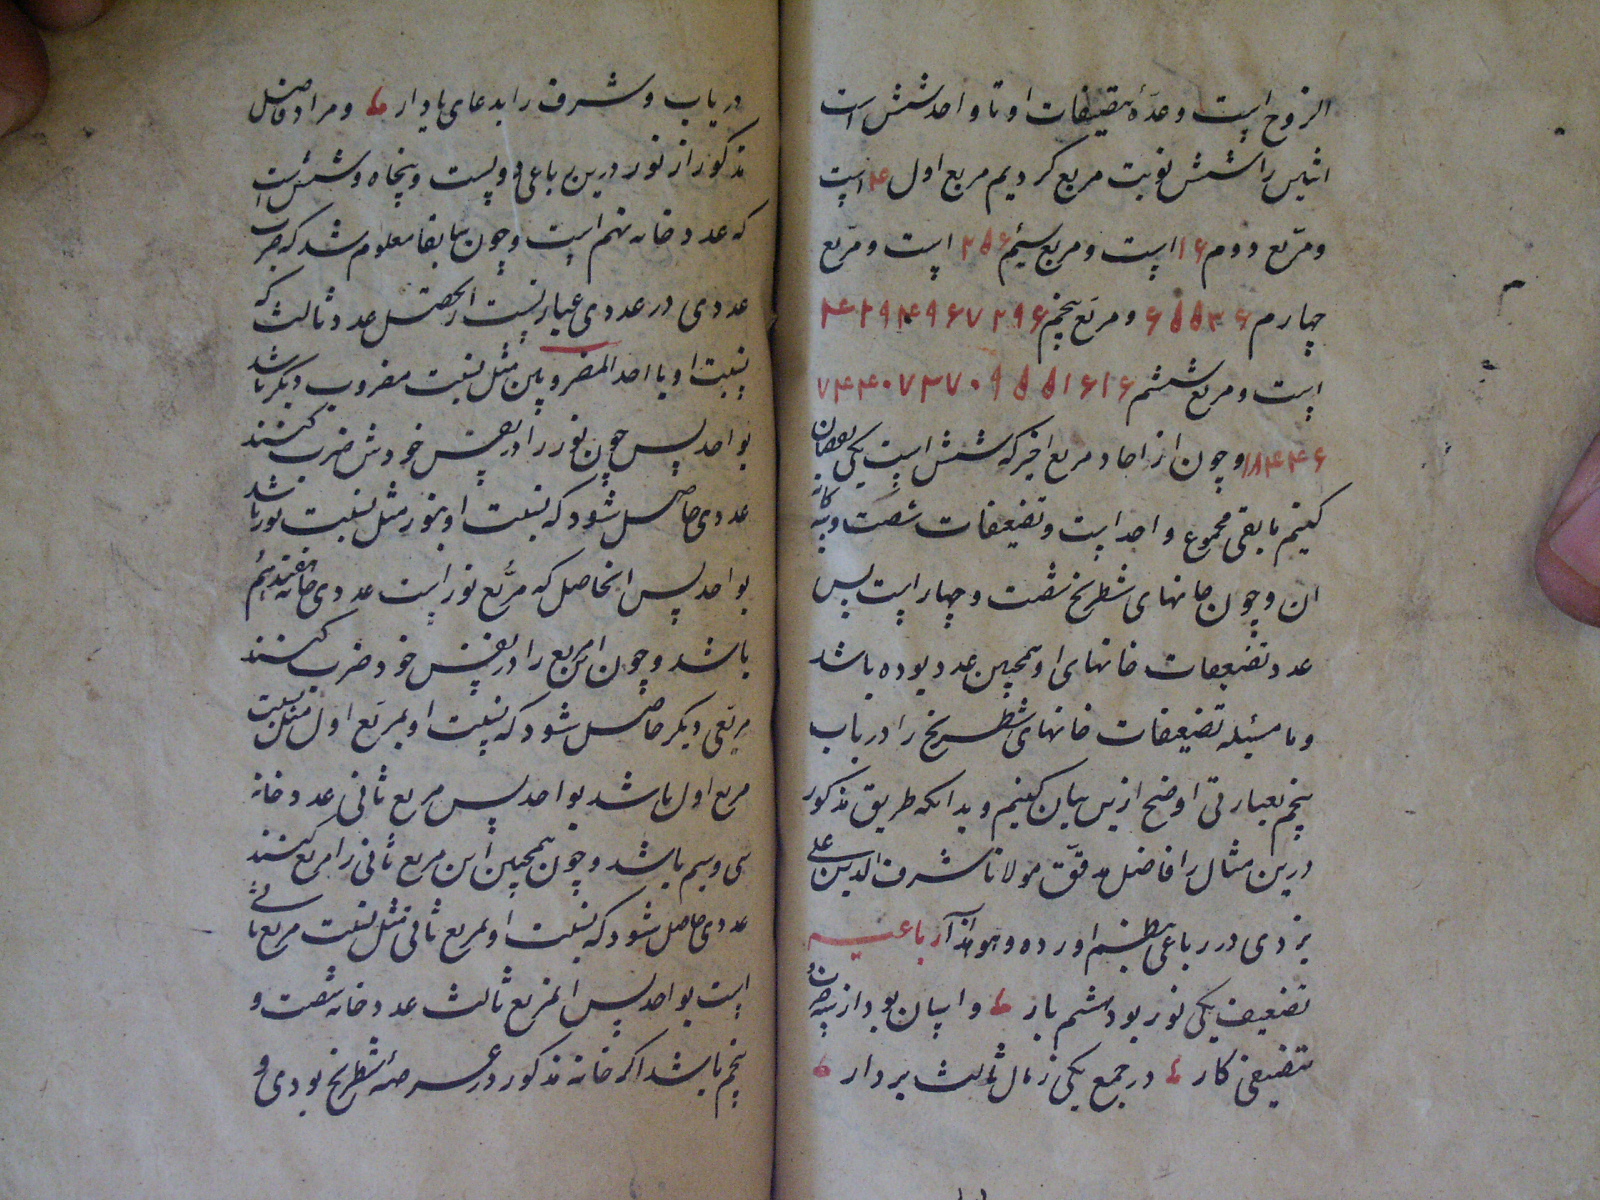 الزوج است و عدّهٔ تنصیفات او تا واحد شش است
اثنین را شش نوبت مربع کردیم مربع اول ۴ است
و مربع دوم ۱۶ است و مربع سیم ۲۵۶ است و مربع
چهارم ۶۵۵۳۶ و مربع پنجم ۴۲۹۴۹۶۷۲۹۶
است و مربع ششم ۷۴۴۰۷۳۷۰۹۵۵۱۶۱۶
۱۸۴۴۶ و چون از احاد مربع اخیر که شش است یکی نقصان
کنیم مابقی مجموع واحد است و تضعیفات شصت و سه کانه
ان و چون خانهای شطرنج شصت و چهار است پس
عدد تضعیفات خانهای او همچین عدد بوده باشد
و ما مسئله تضعیفات خانهای شطرنج را در باب
پنجم بعبارتی اوضح ازین بیان کنیم و بدانکه طریق مذکور
درین مثال را فاضل مدقق مولانا شرف الدین علی
یزدی در رباعی بنظم اورده و هو هذا رباعیه
تضعیف یکی نور بود ششم بار و اسان بود از
تضیفی کار در جمع یکی ز مال ثالث بردار
دریاب و شرف را بدعای یاد ار و مراد فاضل
مذکور از نور درین رباعی دویست و پنجاه و شش است
که عدد خانه نهم است و چون سابقا معلوم شد که ضرب
عددی در عددی عبارتست از تحصیل عدد ثالث که
نسبت او با احد المضروبین مثل نسبت مضروب دیکر باشد
بواحد پس چون نور را در نفس خودش ضرب کنند
عددی حاصل شود که نسبت او بنور مثل نسبت نور باشد
بواحد پس انحاصل که مربع نور است عددی خانه هفدهم
باشد و چون این مربع را در نفس خود ضرب کنند
مربعی دیکر حاصل شود که نسبت او بمربع اول مثل نسبت
مربع اول باشد بواحد پس مربع ثانی عدد خانه
سی و سیم باشد و چون همچنین این مربع ثانی را مربع کنند
عددی حاصل شود که نسبت او بمربع ثانی مثل نسبت مربع ثانی
است بواحد پس المربع ثالث عدد خانه شصت و
پنجم باشد اکر خانه مذکور در عرصهٔ شطرنج بودی و